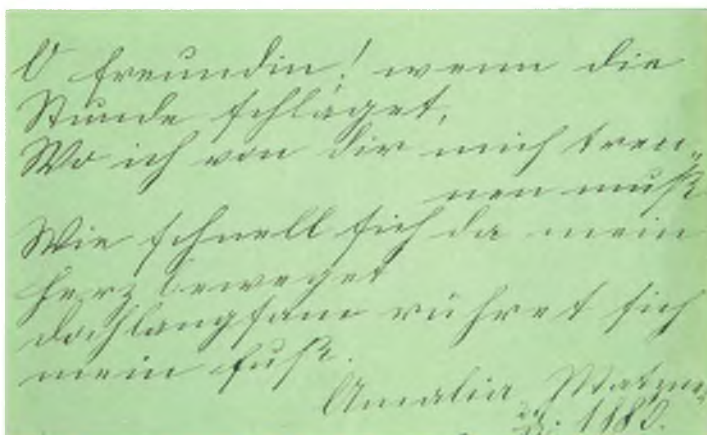 O Freundin! wenn die
Stunde schläget,
Wo ich von dir mich tren„
nen muß
Wie schnell sich da mein
Herz beweget
doch langsam rühret sich
mein Fuß.
Amalia
1880.